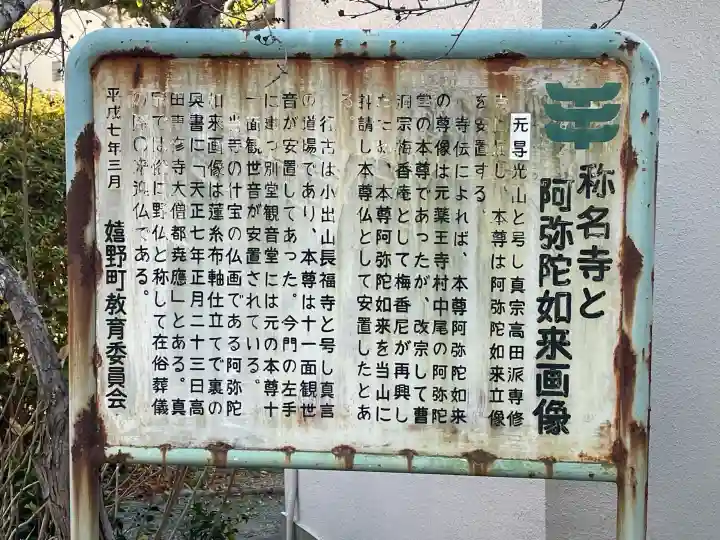 称名寺と
阿弥陀如来画像
元尋光山と号し真宗高田派専修
し、本尊は阿弥陀如来立像
を安置する。
寺伝によれば、本尊阿弥陀如来
の尊像は元薬王寺村中尾の阿弥陀
堂の本尊であったが、改宗して曹
洞宗梅香庵として梅香尼が再興し
ため、本尊阿弥陀如来を当山に
請し本尊仏として安置したとあ
る。
往古は小出山長福寺と号し真言
の道場であり、本尊は十一面観世
音が安置してあった。今門の左手
に建つ別堂観音堂には元の本尊十
一面観世音が安置されている。
当寺の什宝の仏画である阿弥陀
如来画像は蓬糸布軸仕立てで裏の
奥書に「天正七年正月二十三日高
田専修寺大僧都尭應」とある。真
では俗に野仏と称して在俗葬儀
の 仏である。
平成七年三月
嬉野町教育委員会